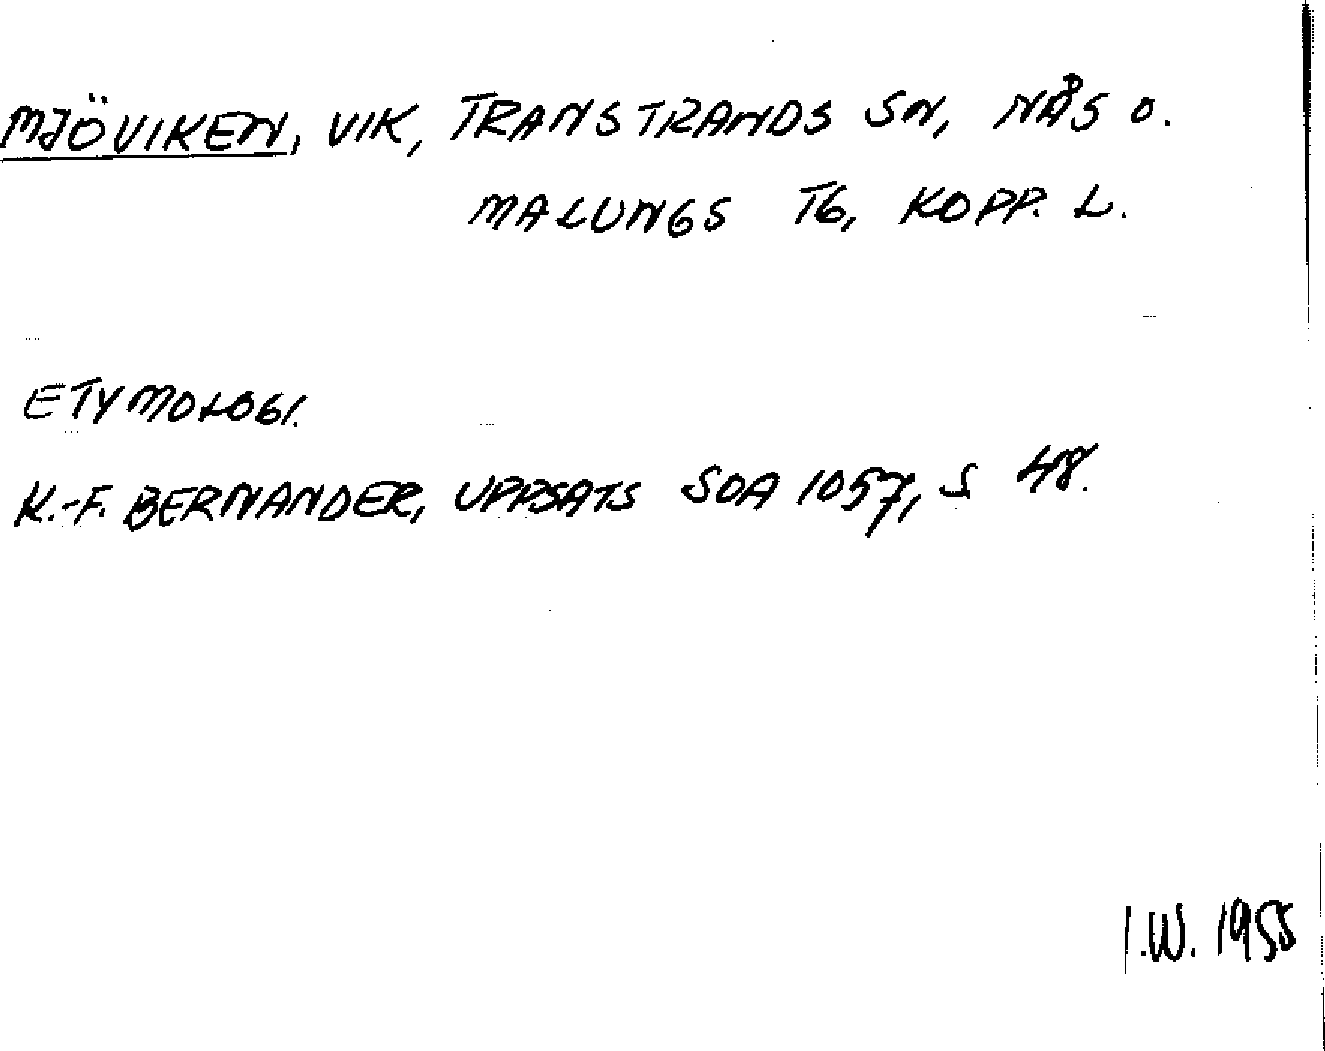 MJÖVIKEN, VIK, TRANSTRANDS SN, NÅS O.
MALUNGS TG, KOPP. L.
ETYMOLOGI.
K.-F. BERNANDER, UPPSATS SOA 1057, S 48.
I.W. 1955